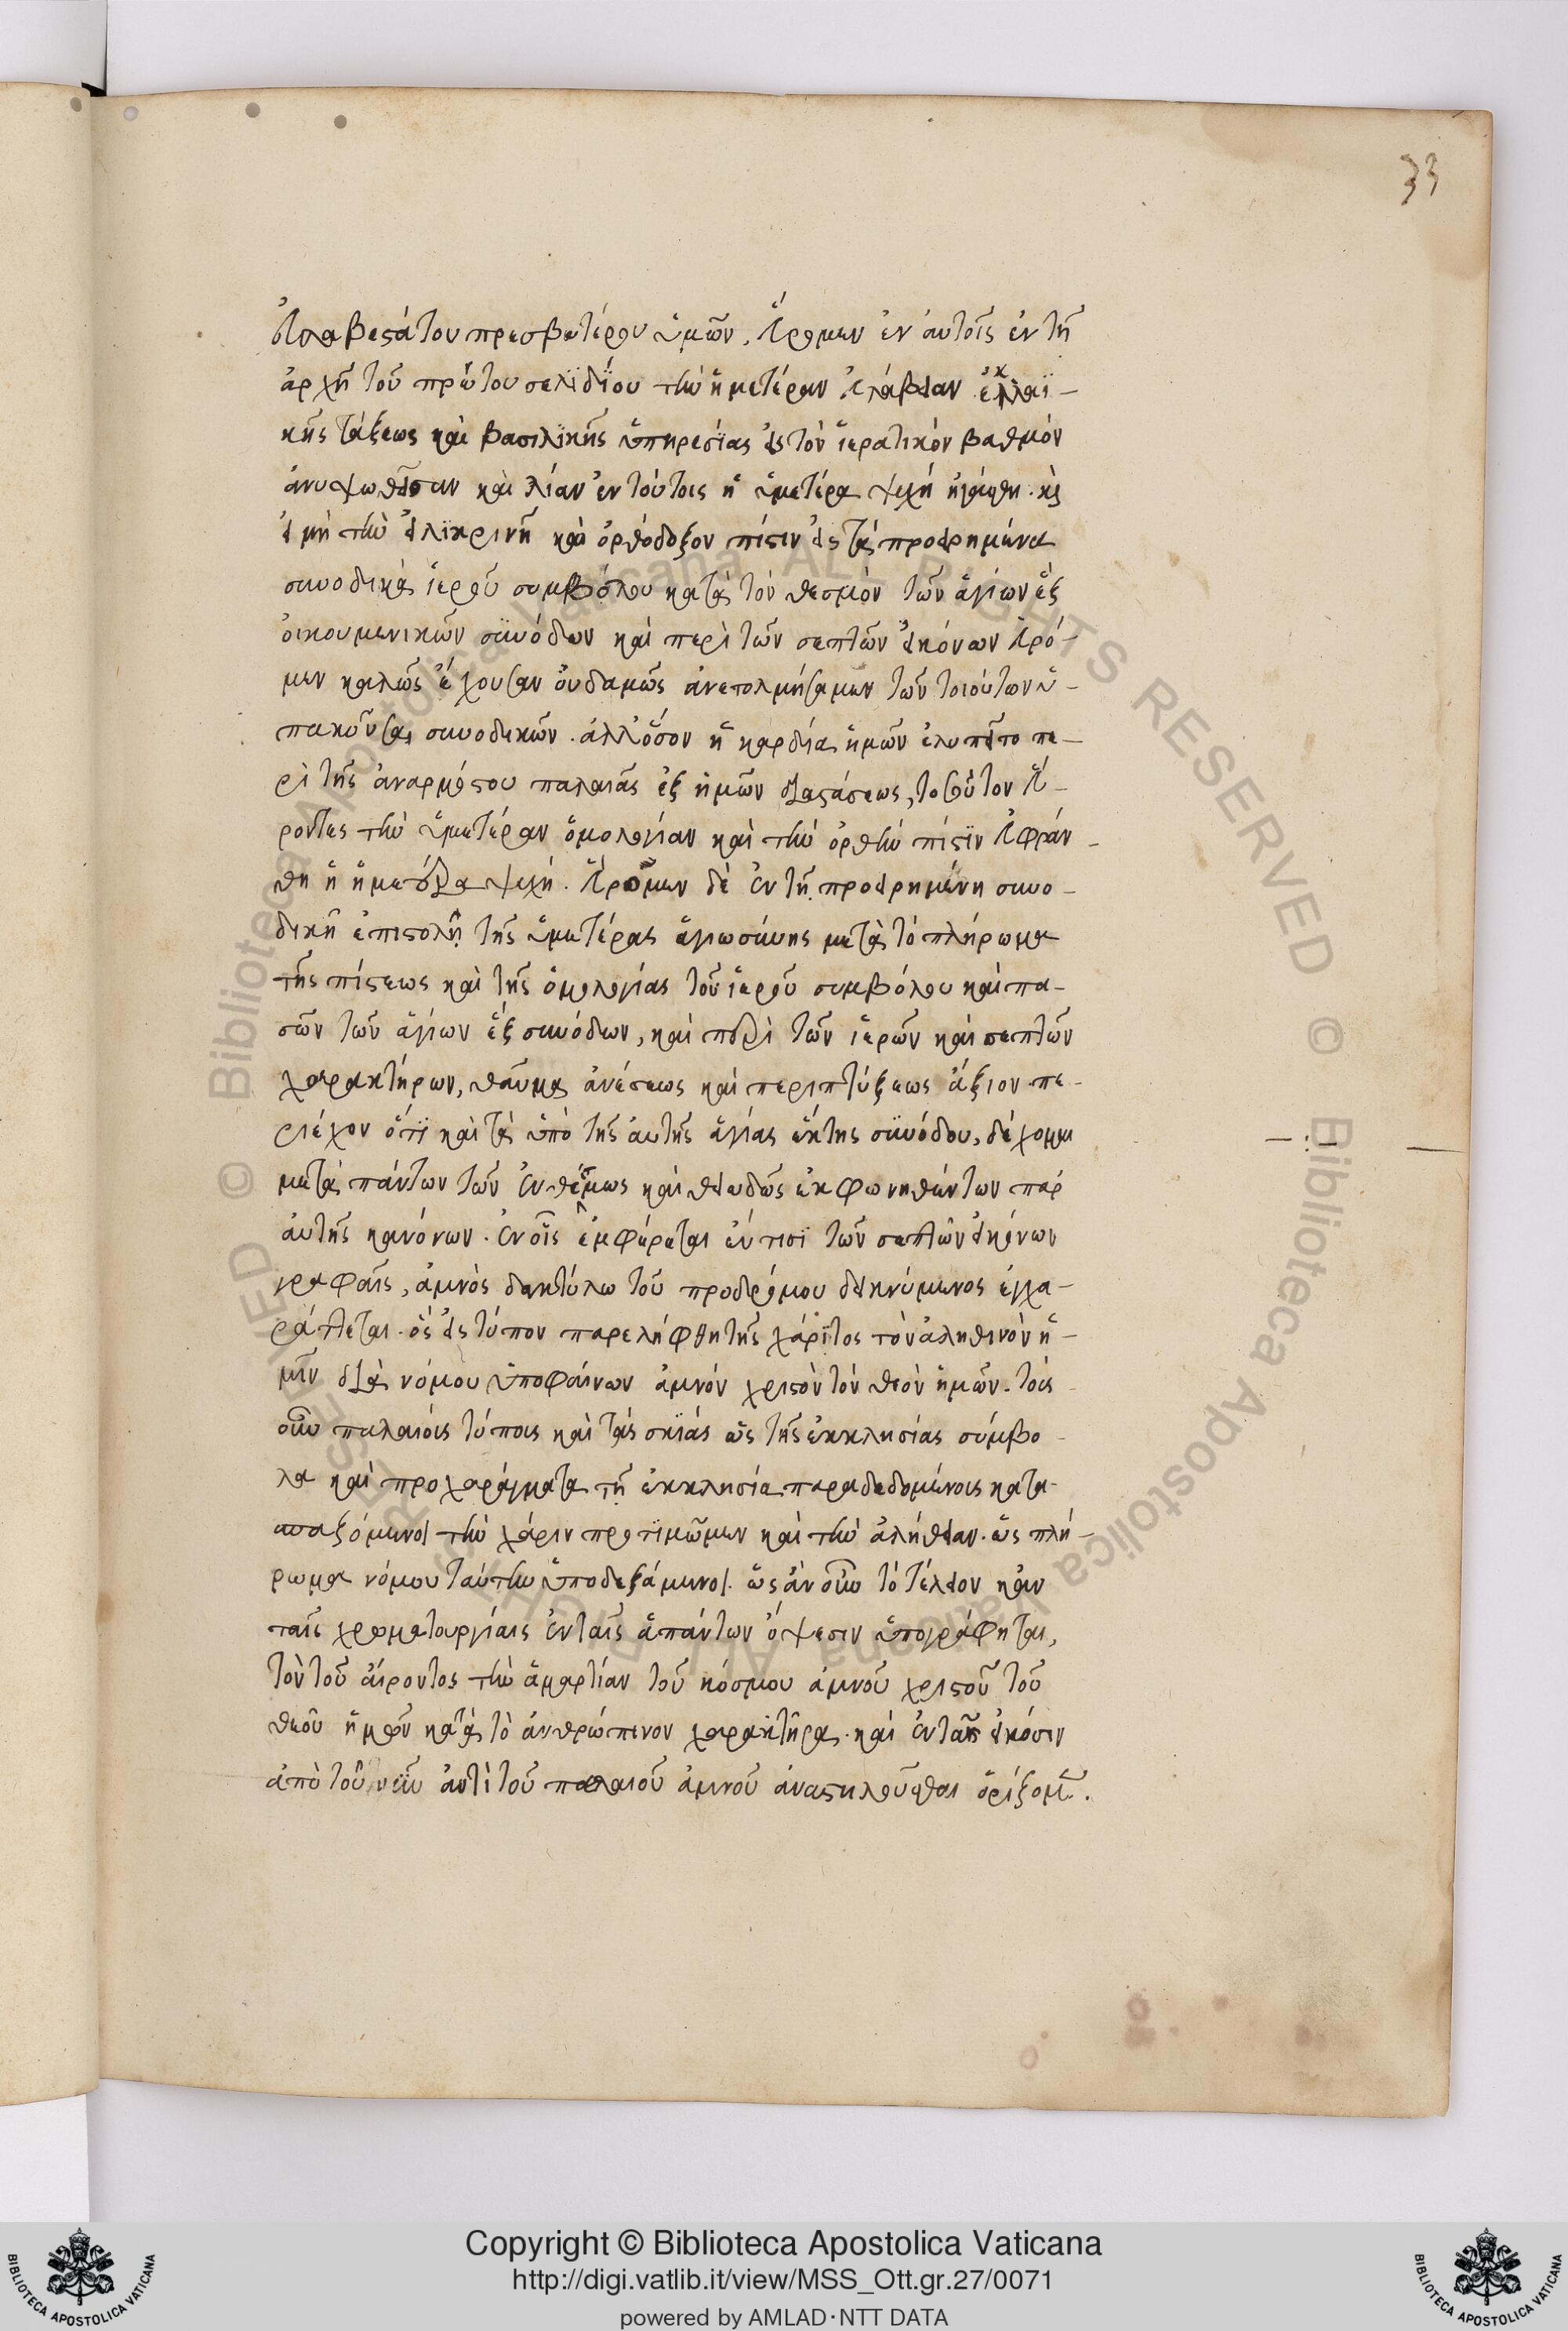 33
εὐλαβεστάτου πρεσβυτέρου ὑμῶν, εὕρομεν ἐν αὐτοῖς ἐν τῇ
ἀρχῇ τοῦ πρώτου σελϊδΐου τὴν ἡμετέραν εὐλάβειαν ἐκ λαϊ-
κῆς τάξεως καὶ βασιλϊκῆς ὑπηρεσΐας εἰς τὸν ἱερατικὸν βαθμὸν
ἀνυψωθεῖσαν καὶ λίαν ἐν τούτοις ἡ ἡμετέρα ψυχὴ ἠγάσθη. καὶ
εἰ μὴ τὴν εἰλϊκρινῆ καὶ ὀρθόδοξον πίστιν εἰς τὰ προειρημένα
συνοδικὰ ἱεροῦ συμβόλου κατὰ τὸν θεσμὸν τῶν ἁγίων ἓξ
οἰκουμενικῶν συνόδων καὶ περὶ τῶν σεπτῶν εἰκόνων εὕρο-
μεν καλῶς ἔχουσαν οὐδαμῶς ἀνετολμήσαμεν τῶν τοιούτων ὑ-
πακοῦσαι συνοδικῶν. ἀλλ' ὅσον ἡ καρδία ἡμῶν ἐλυπεῖτο πε-
ρὶ τῆς ἀναρμόστου παλαιᾶς ἐξ ἡμῶν διαστάσεως, τοσοῦτον εὑ-
ρόντες τὴν ὑμετέραν ὁμολογίαν καὶ τὴν ὀρθὴν πίστιν εὐφράν-
θη ἡ ἡμετέρα ψυχή. εὕρομεν δὲ ἐν τῇ προειρημένῃ συνο-
δικῇ ἐπιστολῇ τῆς ὑμετέρας ἁγιωσύνης μετὰ τὸ πλήρωμα
τῆς πίστεως καὶ τῆς ὁμολογίας τοῦ ἱεροῦ συμβόλου καὶ πα-
σῶν τῶν ἁγίων ἓξ συνόδων, καὶ περὶ τῶν ἱερῶν καὶ σεπτῶν
χαρακτήρων, θαῦμα ἀνέσεως καὶ περιπτύξεως ἄξιον πε-
ριέχον ὅτϊ καὶ τὰ ὑπὸ τῆς αὐτῆς ἁγίας ἕκτης συνόδου, δέχομαι
μετὰ πάντων τῶν ἐνθέσμως καὶ θειωδῶς ἐκφωνηθέντων παρ'
αὐτῆς κανόνων. ἐν οἷς ἐμφέρεται ἔν τισϊ τῶν σεπτῶν εἰκόνων
γραφαῖς, ἀμνὸς δακτύλω τοῦ προδρόμου δεικνύμενος ἐγχα-
ράττεται. ὃς εἰς τύπον παρελήφθη τῆς χάρϊτος τὸν ἀληθινὸν ἡ-
μῖν διὰ νόμου ὑποφαίνων ἀμνὸν χριστὸν τὸν θεὸν ἡμῶν. τοὺς
οὖν παλαιοὺς τύπους καὶ τὰς σκϊὰς ὡς τῆς ἐκκλησίας σύμβο-
λα καὶ προχαράγματα τῇ ἐκκλησία παραδεδομένους κατα-
σπαζόμενοι τὴν χάριν προτϊμῶμεν καὶ τὴν ἀλήθειαν. ὡς πλή-
ρωμα νόμου ταύτην ὑποδεξάμενοι. ὡς ἂν οὖν τὸ τέλειον κἀν
ταῖς χρωματουργίαις ἐν ταῖς ἁπάντων ὄψεσιν ὑπογράφηται,
τὸν τοῦ αἴροντος τὴν ἁμαρτίαν τοῦ κόσμου ἀμνοῦ χριστοῦ τοῦ
θεοῦ ἡμῶν κατὰ τὸ ἀνθρώπινον χαρακτῆρα. καὶ ἐν ταῖς εἰκόσιν
ἀπὸ τοῦ νῦν ἀντὶ τοῦ παλαιοῦ ἀμνοῦ ἀναστηλοῦσθαι ὁρίζομεν.
Copyright © Biblioteca Apostolica Vaticana
http://digi.vatlib.it/view/MSS_Ott.gr.27/0071
powered by AMLAD·NTT DATA